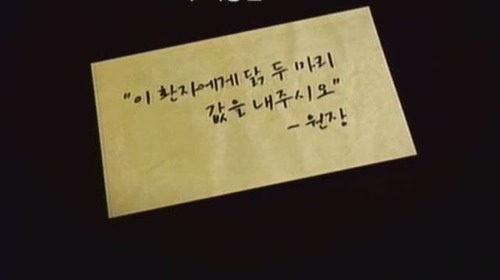 "이 환자에게 닭 두 마리
값을 내주시오"
- 원장